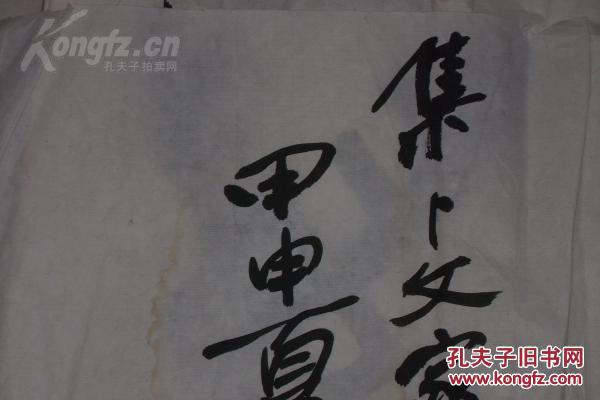 集卜文字
甲申夏
Kongfz.cn
孔夫子拍卖网
孔夫子旧书网
www.kongfz.com